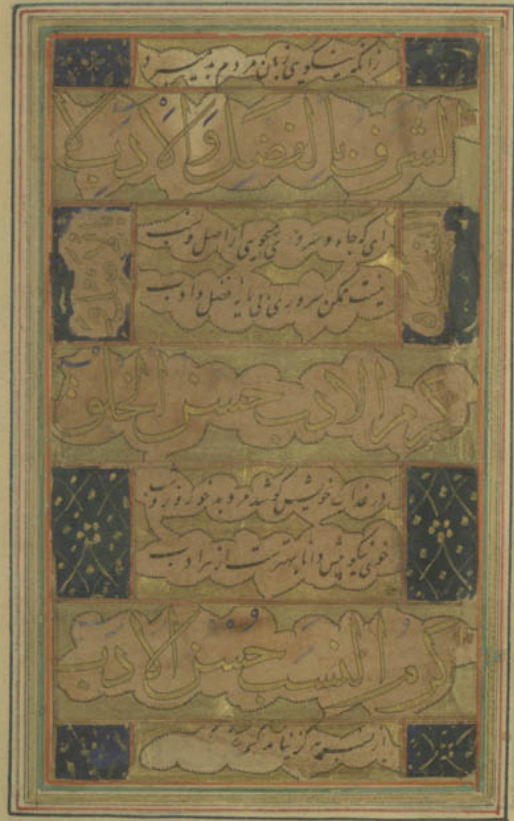 زبان مردم بد
الشرف بالفضل والادب لا
ای که جاه و سروری میجویی از اصل و نسب
نیست ممکن سروری بی مایه فضل و ادب
اکرم الادب حسن الخلق
در خویش کوشد مرد بد خو روز و شب
خوی نیکو پیش دانا بهترست از هر ادب
اکرم النسب حسن الادب
از نسب هرگز